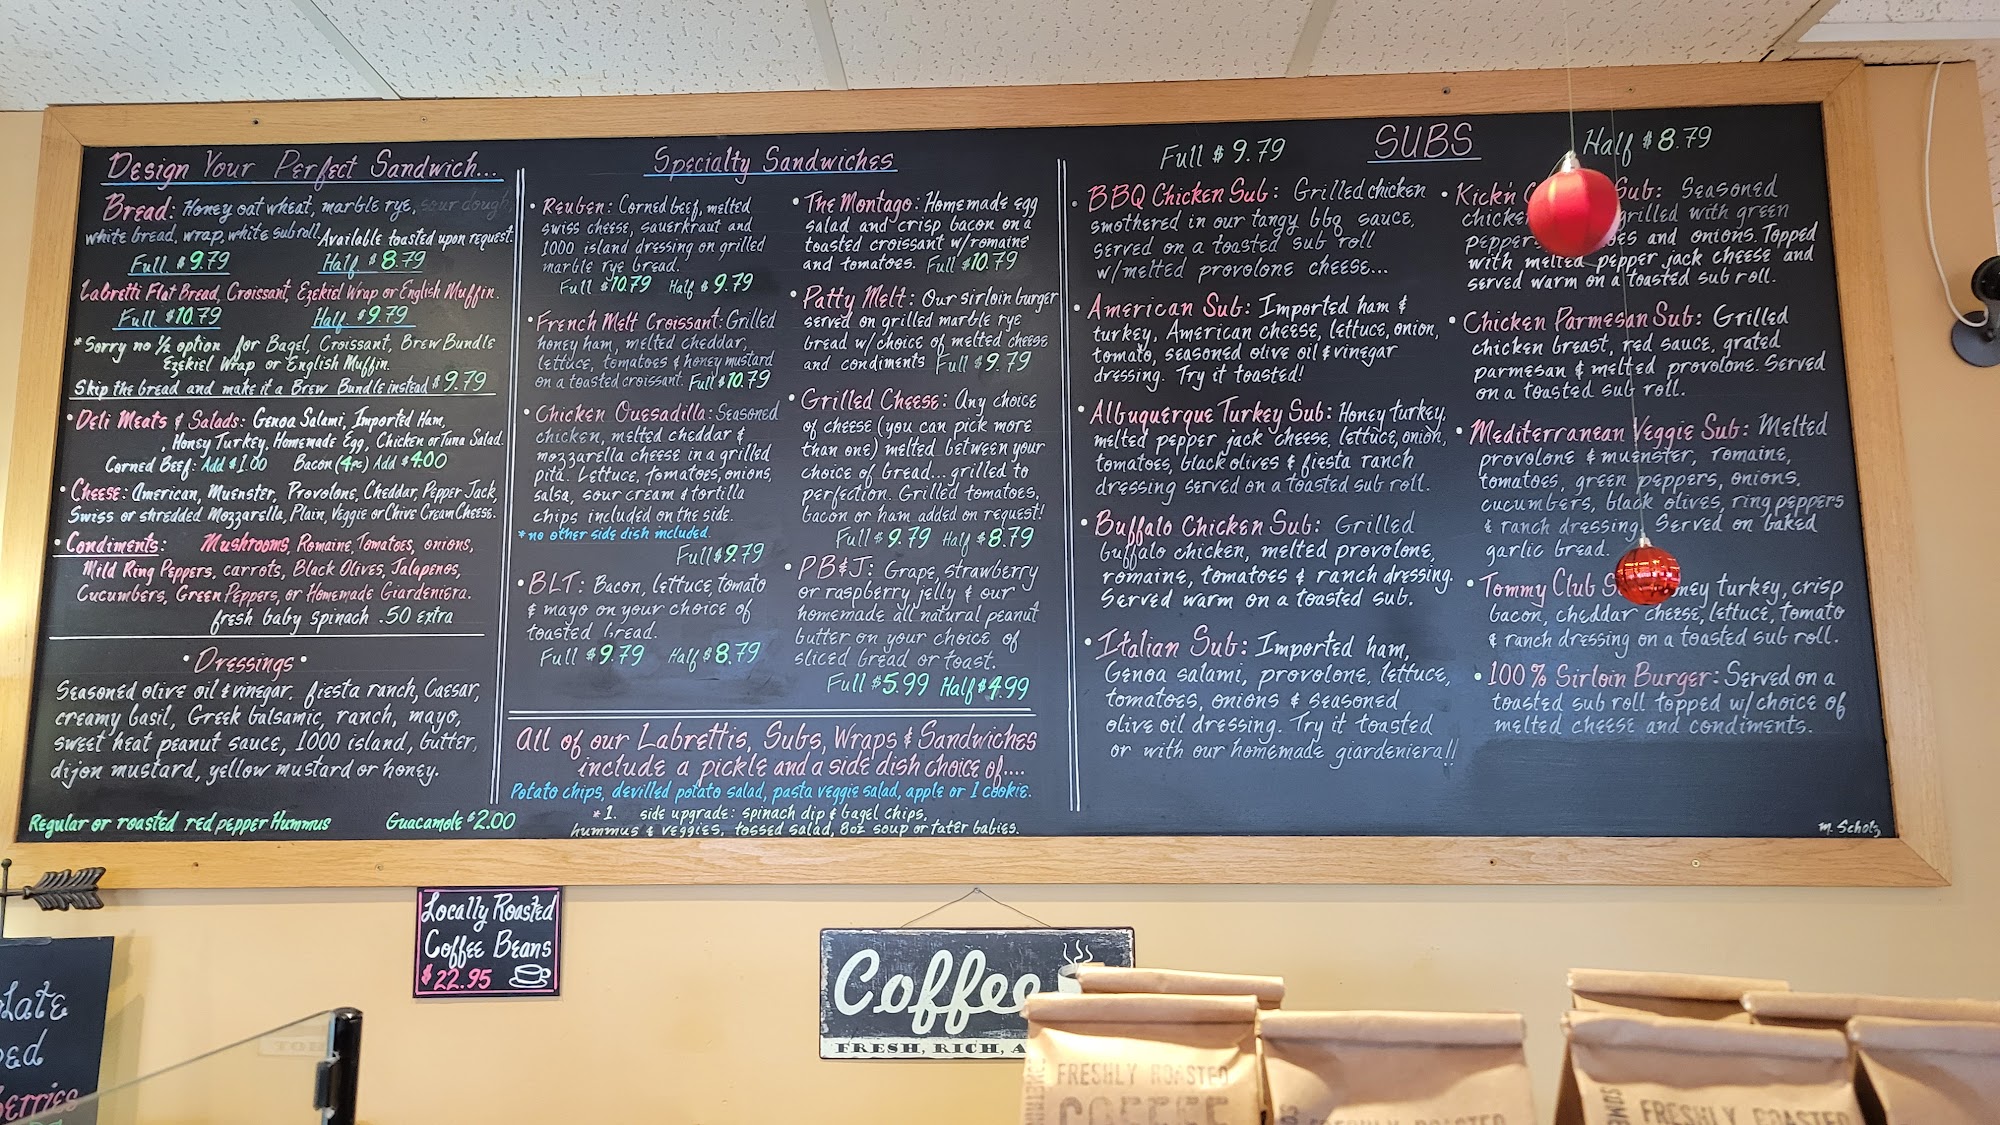 Design Your Perfect Sandwich...
Bread: Honey oat wheat, marble rye, sour dough,
white bread, wrap, white sub roll. Available toasted upon request.
Full $9.79 Half $8.79
Labretti Flat Bread, Croissant, Ezekiel Wrap or English Muffin.
Full $10.79 Half $9.79
*Sorry no 1/2 option for Bagel, Croissant, Brew Bundle
Ezekiel Wrap or English Muffin.
Skip the bread and make it a Brew Bundle instead $9.79
• Deli Meats & Salads: Genoa Salami, Imported Ham,
Honey Turkey, Homemade Egg, Chicken or Tuna Salad.
Corned Beef: Add $1.00 Bacon (4pc) Add $4.00
• Cheese: American, Muenster, Provolone, Cheddar, Pepper Jack,
Swiss or shredded Mozzarella, Plain, Veggie or Chive Cream Cheese.
• Condiments: Mushrooms, Romaine, Tomatoes, onions,
Mild Ring Peppers, carrots, Black Olives, Jalapenos,
Cucumbers, Green Peppers, or Homemade Giardeniera.
fresh baby spinach .50 extra
• Dressings •
Seasoned olive oil & vinegar, fiesta ranch, Caesar,
creamy basil, Greek balsamic, ranch, mayo,
sweet heat peanut sauce, 1000 island, butter,
dijon mustard, yellow mustard or honey.
Regular or roasted red pepper Hummus Guacamole $2.00
Specialty Sandwiches
• Reuben: Corned beef, melted
swiss cheese, sauerkraut and
1000 island dressing on grilled
marble rye bread.
Full $10.79 Half $9.79
• French Melt Croissant: Grilled
honey ham, melted cheddar,
lettuce, tomatoes & honey mustard
on a toasted croissant. Full $10.79
• Chicken Quesadilla: Seasoned
chicken, melted cheddar &
mozzarella cheese in a grilled
pita. Lettuce, tomatoes, onions,
salsa, sour cream & tortilla
chips included on the side.
*no other side dish included.
Full $9.79
• BLT: Bacon, lettuce, tomato
& mayo on your choice of
toasted bread.
Full $9.79 Half $8.79
• The Montago: Homemade egg
salad and crisp bacon on a
toasted croissant w/romaine
and tomatoes. Full $10.79
• Patty Melt: Our sirloin burger
served on grilled marble rye
bread w/choice of melted cheese
and condiments Full $9.79
• Grilled Cheese: Any choice
of cheese (you can pick more
than one) melted between your
choice of bread...grilled to
perfection. Grilled tomatoes,
bacon or ham added on request!
Full $9.79 Half $8.79
• PB&J: Grape, strawberry
or raspberry jelly & our
homemade all natural peanut
butter on your choice of
sliced bread or toast.
Full $5.99 Half $4.99
All of our Labrettis, Subs, Wraps & Sandwiches
include a pickle and a side dish choice of....
Potato chips, devilled potato salad, pasta veggie salad, apple or 1 cookie.
*1. side upgrade: spinach dip & bagel chips,
hummus & veggies, tossed salad, 8oz soup or tater babies.
Full $9.79 SUBS Half $8.79
• BBQ Chicken Sub: Grilled chicken
smothered in our tangy bbq sauce,
served on a toasted sub roll
w/melted provolone cheese...
• American Sub: Imported ham &
turkey, American cheese, lettuce, onion,
tomato, seasoned olive oil & vinegar
dressing. Try it toasted!
• Albuquerque Turkey Sub: Honey turkey,
melted pepper jack cheese, lettuce, onion,
tomatoes, black olives & fiesta ranch
dressing served on a toasted sub roll.
• Buffalo Chicken Sub: Grilled
buffalo chicken, melted provolone,
romaine, tomatoes & ranch dressing.
Served warm on a toasted sub.
• Italian Sub: Imported ham,
Genoa salami, provolone, lettuce,
tomatoes, onions & seasoned
olive oil dressing. Try it toasted
or with our homemade giardeniera!!
• Kick'n Sub: Seasoned
chicken grilled with green
peppers and onions. Topped
with melted pepper jack cheese and
served warm on a toasted sub roll.
• Chicken Parmesan Sub: Grilled
chicken breast, red sauce, grated
parmesan & melted provolone. Served
on a toasted sub roll.
• Mediterranean Veggie Sub: Melted
provolone & muenster, romaine,
tomatoes, green peppers, onions,
cucumbers, black olives, ring peppers
& ranch dressing. Served on baked
garlic bread.
• Tommy Club turkey, crisp
bacon, cheddar cheese, lettuce, tomato
& ranch dressing on a toasted sub roll.
• 100% Sirloin Burger: Served on a
toasted sub roll topped w/choice of
melted cheese and condiments.
M. Scholz
Locally Roasted
Coffee Beans
$22.95
Coffee
FRESH, RICH,
FRESHLY ROASTED
COFFEE
FRESHLY ROASTED
FRESHLY ROASTED